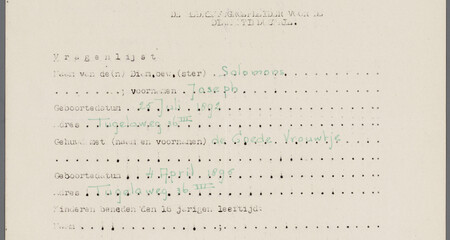 Vragenlijst
Naam van de(n) Dienaew.(ster) Salomons
; voornamen Joseph
Geboortedatum 25 Juli 1892
Adres Tugelaweg 36 III
Gehuwd met (naam en voornamen) de Goede Vrouwtje
Geboortedatum 4 April 1895
Adres Tugelaweg 36 III
Kinderen beneden den 16 jarigen leeftijd:
Naam ;